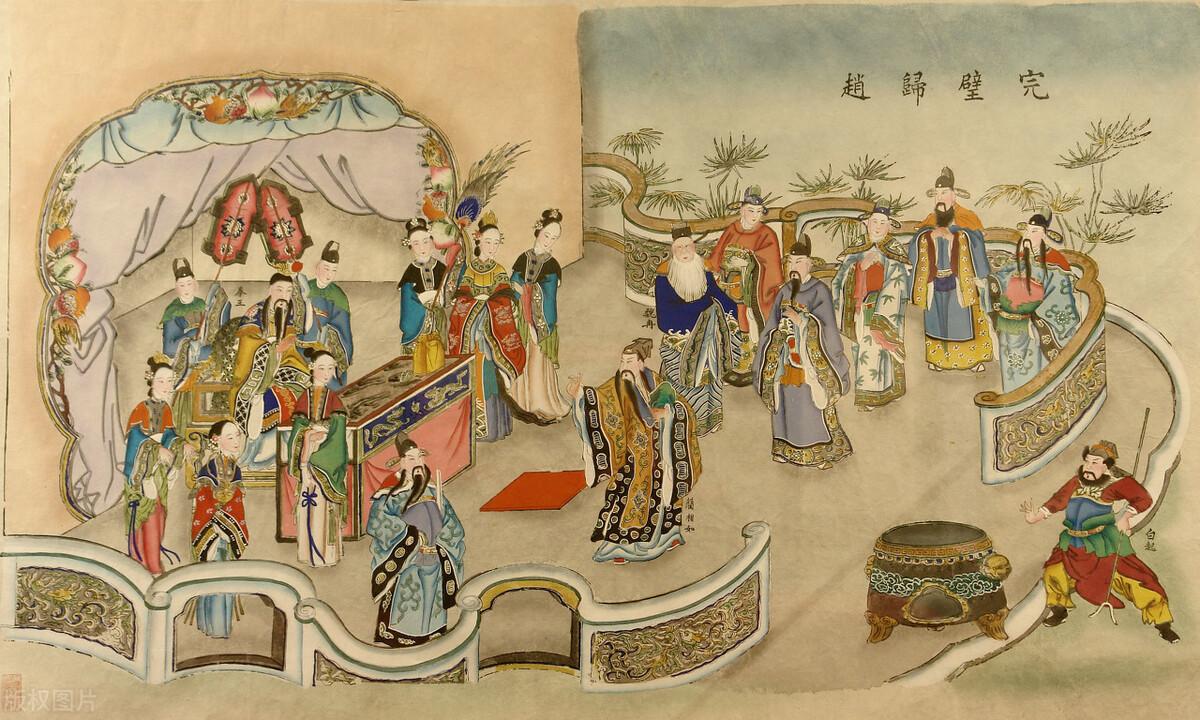 完璧歸趙
秦王
魏冉
藺相如
白起
版权图片